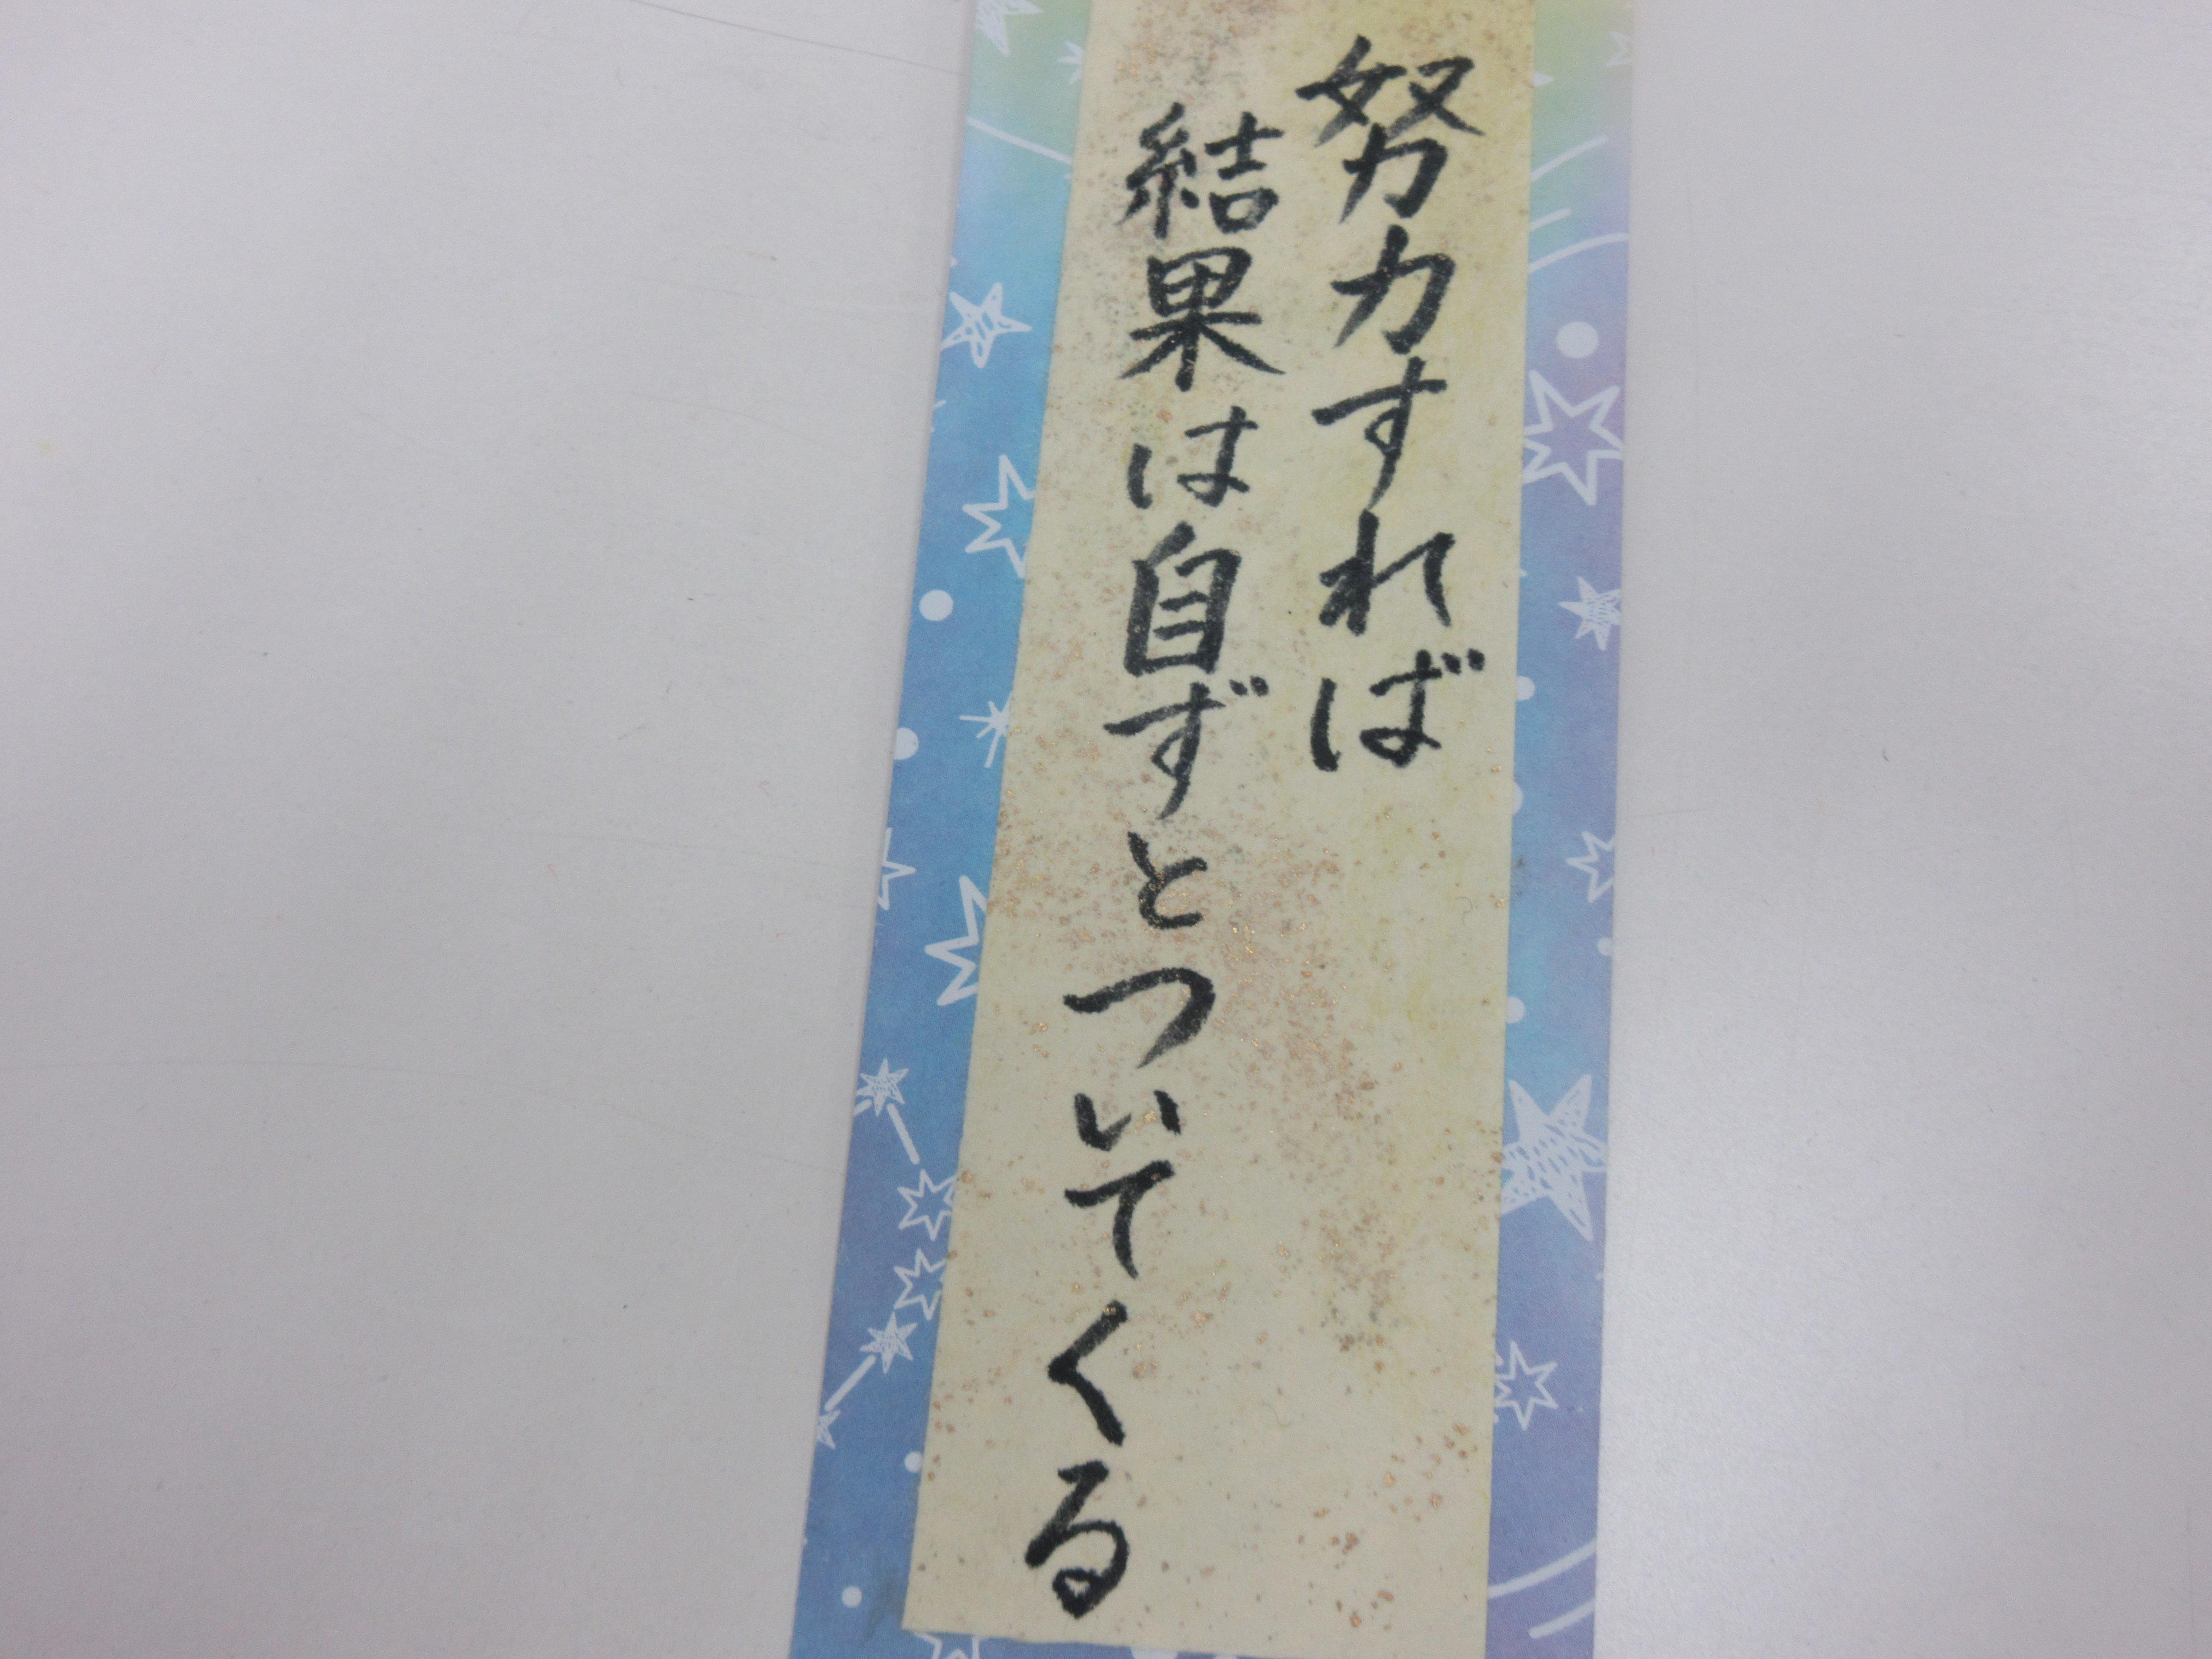 努力すれば
結果は自ずとついてくる